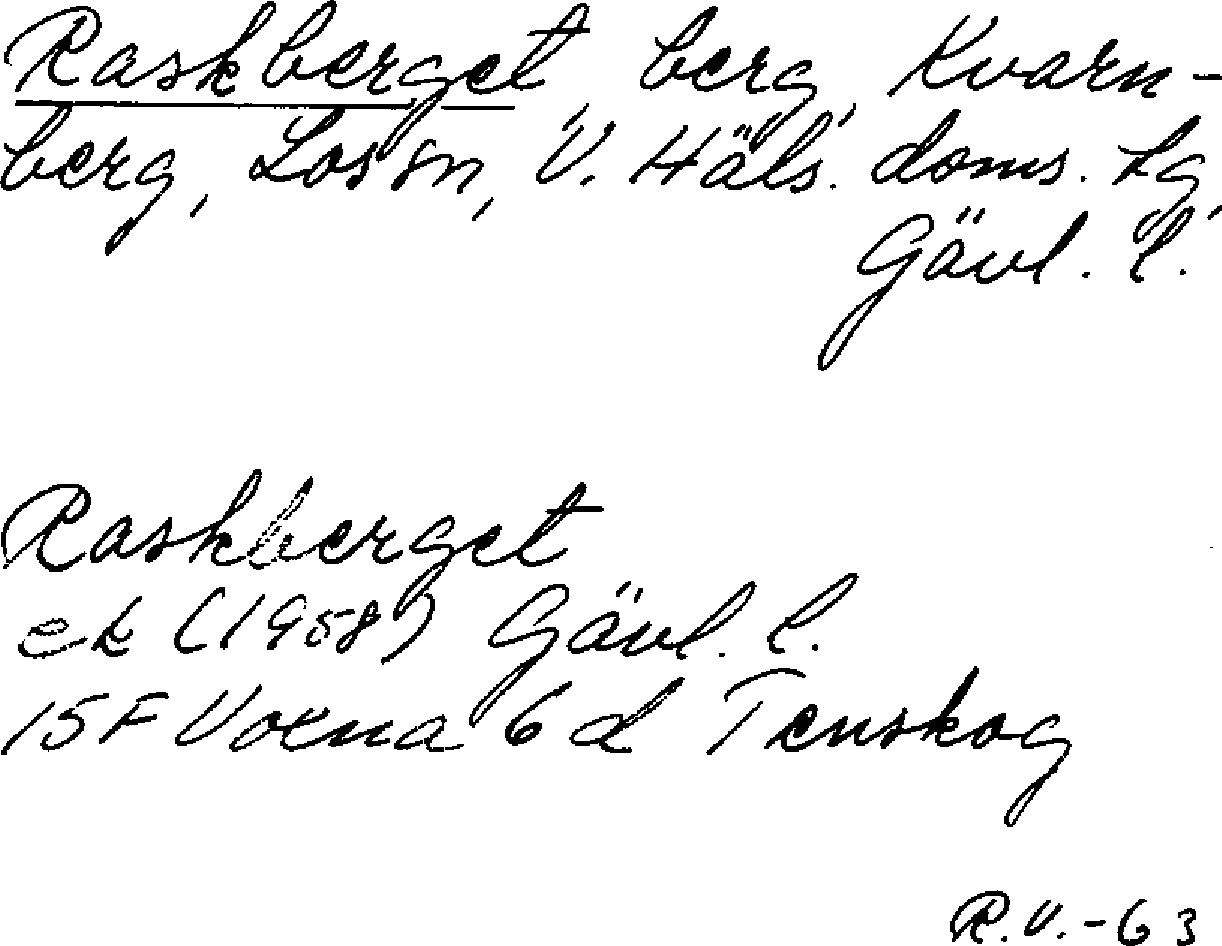 Raskberget, berg, Kvarn-
berg, Los sn, V. Häls. doms. lg,
Gävl. l.
Raskberget
ek (1958) Gävl. l.
15F Voxna 6d Tenskog
R.V.-63